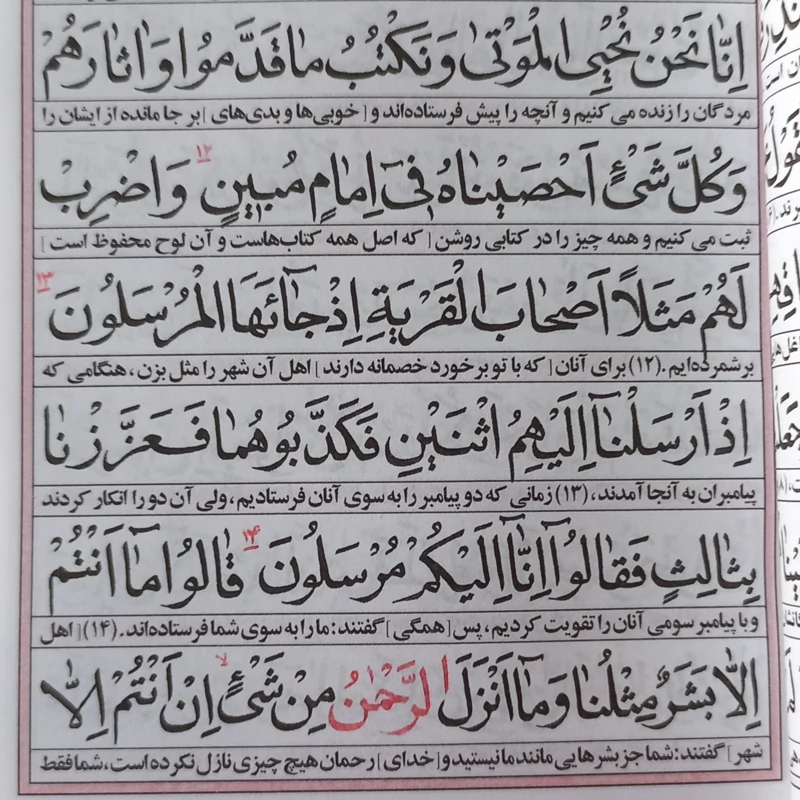 اِنَّا نَحْنُ نُحْيِي الْمَوْتٰى وَ نَكْتُبُ مٰا قَدَّمُوا وَ اٰثٰارَهُمْ
مردگان را زنده می کنیم و آنچه را پیش فرستاده‌اند و [ خوبی‌ها و بدی‌های ] بر جا مانده از ایشان را
وَ كُلَّ شَيْءٍ اَحْصَيْنٰاهُ فِي اِمٰامٍ مُبِينٍ ۱۲ وَ اضْرِبْ
ثبت می کنیم و همه چیز را در کتابی روشن [ که اصل همه کتاب‌هاست و آن لوح محفوظ است ]
لَهُمْ مَثَلاً اَصْحٰابَ الْقَرْيَةِ اِذْ جٰٓائَهَا الْمُرْسَلُونَ ۱۳
برشمرده‌ایم. (۱۲) برای آنان [ که با تو برخورد خصمانه دارند ] اهل آن شهر را مثل بزن، هنگامی که
اِذْ اَرْسَلْنٰٓا اِلَيْهِمُ اثْنَيْنِ فَكَذَّبُوهُمٰا فَعَزَّزْنٰا
پیامبران به آنجا آمدند، (۱۳) زمانی که دو پیامبر را به سوی آنان فرستادیم، ولی آن دو را انکار کردند
بِثٰالِثٍ فَقٰالُوٓا اِنّٰٓا اِلَيْكُمْ مُرْسَلُونَ ۱۴ قٰالُوا مٰٓا اَنْتُمْ
و با پیامبر سومی آنان را تقویت کردیم، پس [ همگی ] گفتند: ما را به سوی شما فرستاده‌اند. (۱۴) [ اهل
اِلاّٰ بَشَرٌ مِثْلُنٰا وَ مٰٓا اَنْزَلَ الرَّحْمٰنُ مِنْ شَيْءٍ لا اِنْ اَنْتُمْ اِلاّٰ
شهر ] گفتند: شما جز بشرهایی مانند ما نیستید و [ خدای ] رحمان هیچ چیزی نازل نکرده است، شما فقط